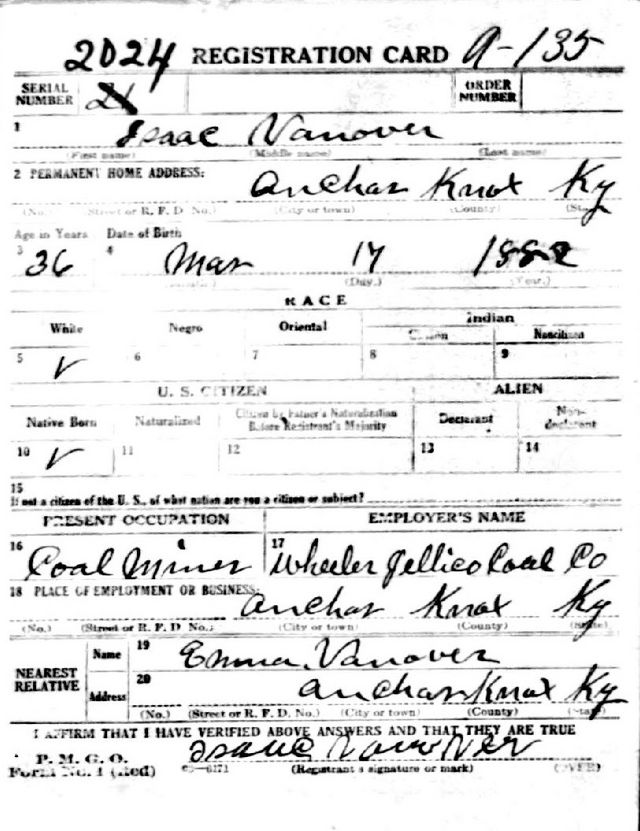 2024 REGISTRATION CARD A-135
SERIAL NUMBER 21 ORDER NUMBER
1 Isaac Vanover
(First name) (Middle name) (Last name)
2 PERMANENT HOME ADDRESS: Anchar Knox Ky
(No.) (Street or R. F. D. No.) (City or town) (County) (State)
Age in Years Date of Birth
3 36 4 Mar 17 1882
(Day.) (Year.)
RACE
White Negro Oriental Indian
Citizen Noncitizen
5 ✓ 6 7 8 9
U. S. CITIZEN ALIEN
Native Born Naturalized Citizen by Father's Naturalization Before Registrant's Majority Declarant Non-declarant
10 ✓ 11 12 13 14
15
If not a citizen of the U. S., of what nation are you a citizen or subject?
PRESENT OCCUPATION EMPLOYER'S NAME
16 Coal Miner 17 Wheeler Jellico Coal Co
18 PLACE OF EMPLOYMENT OR BUSINESS: Anchar Knox Ky
(No.) (Street or R. F. D. No.) (City or town) (County) (State)
NEAREST RELATIVE Name 19 Emma Vanover
Address 20 Anchar Knox Ky
(No.) (Street or R. F. D. No.) (City or town) (County) (State)
I AFFIRM THAT I HAVE VERIFIED ABOVE ANSWERS AND THAT THEY ARE TRUE
P. M. G. O.
Form No. 1 (Red) 03—6171 (Registrant's signature or mark) (OVER)
Isaac Vanover